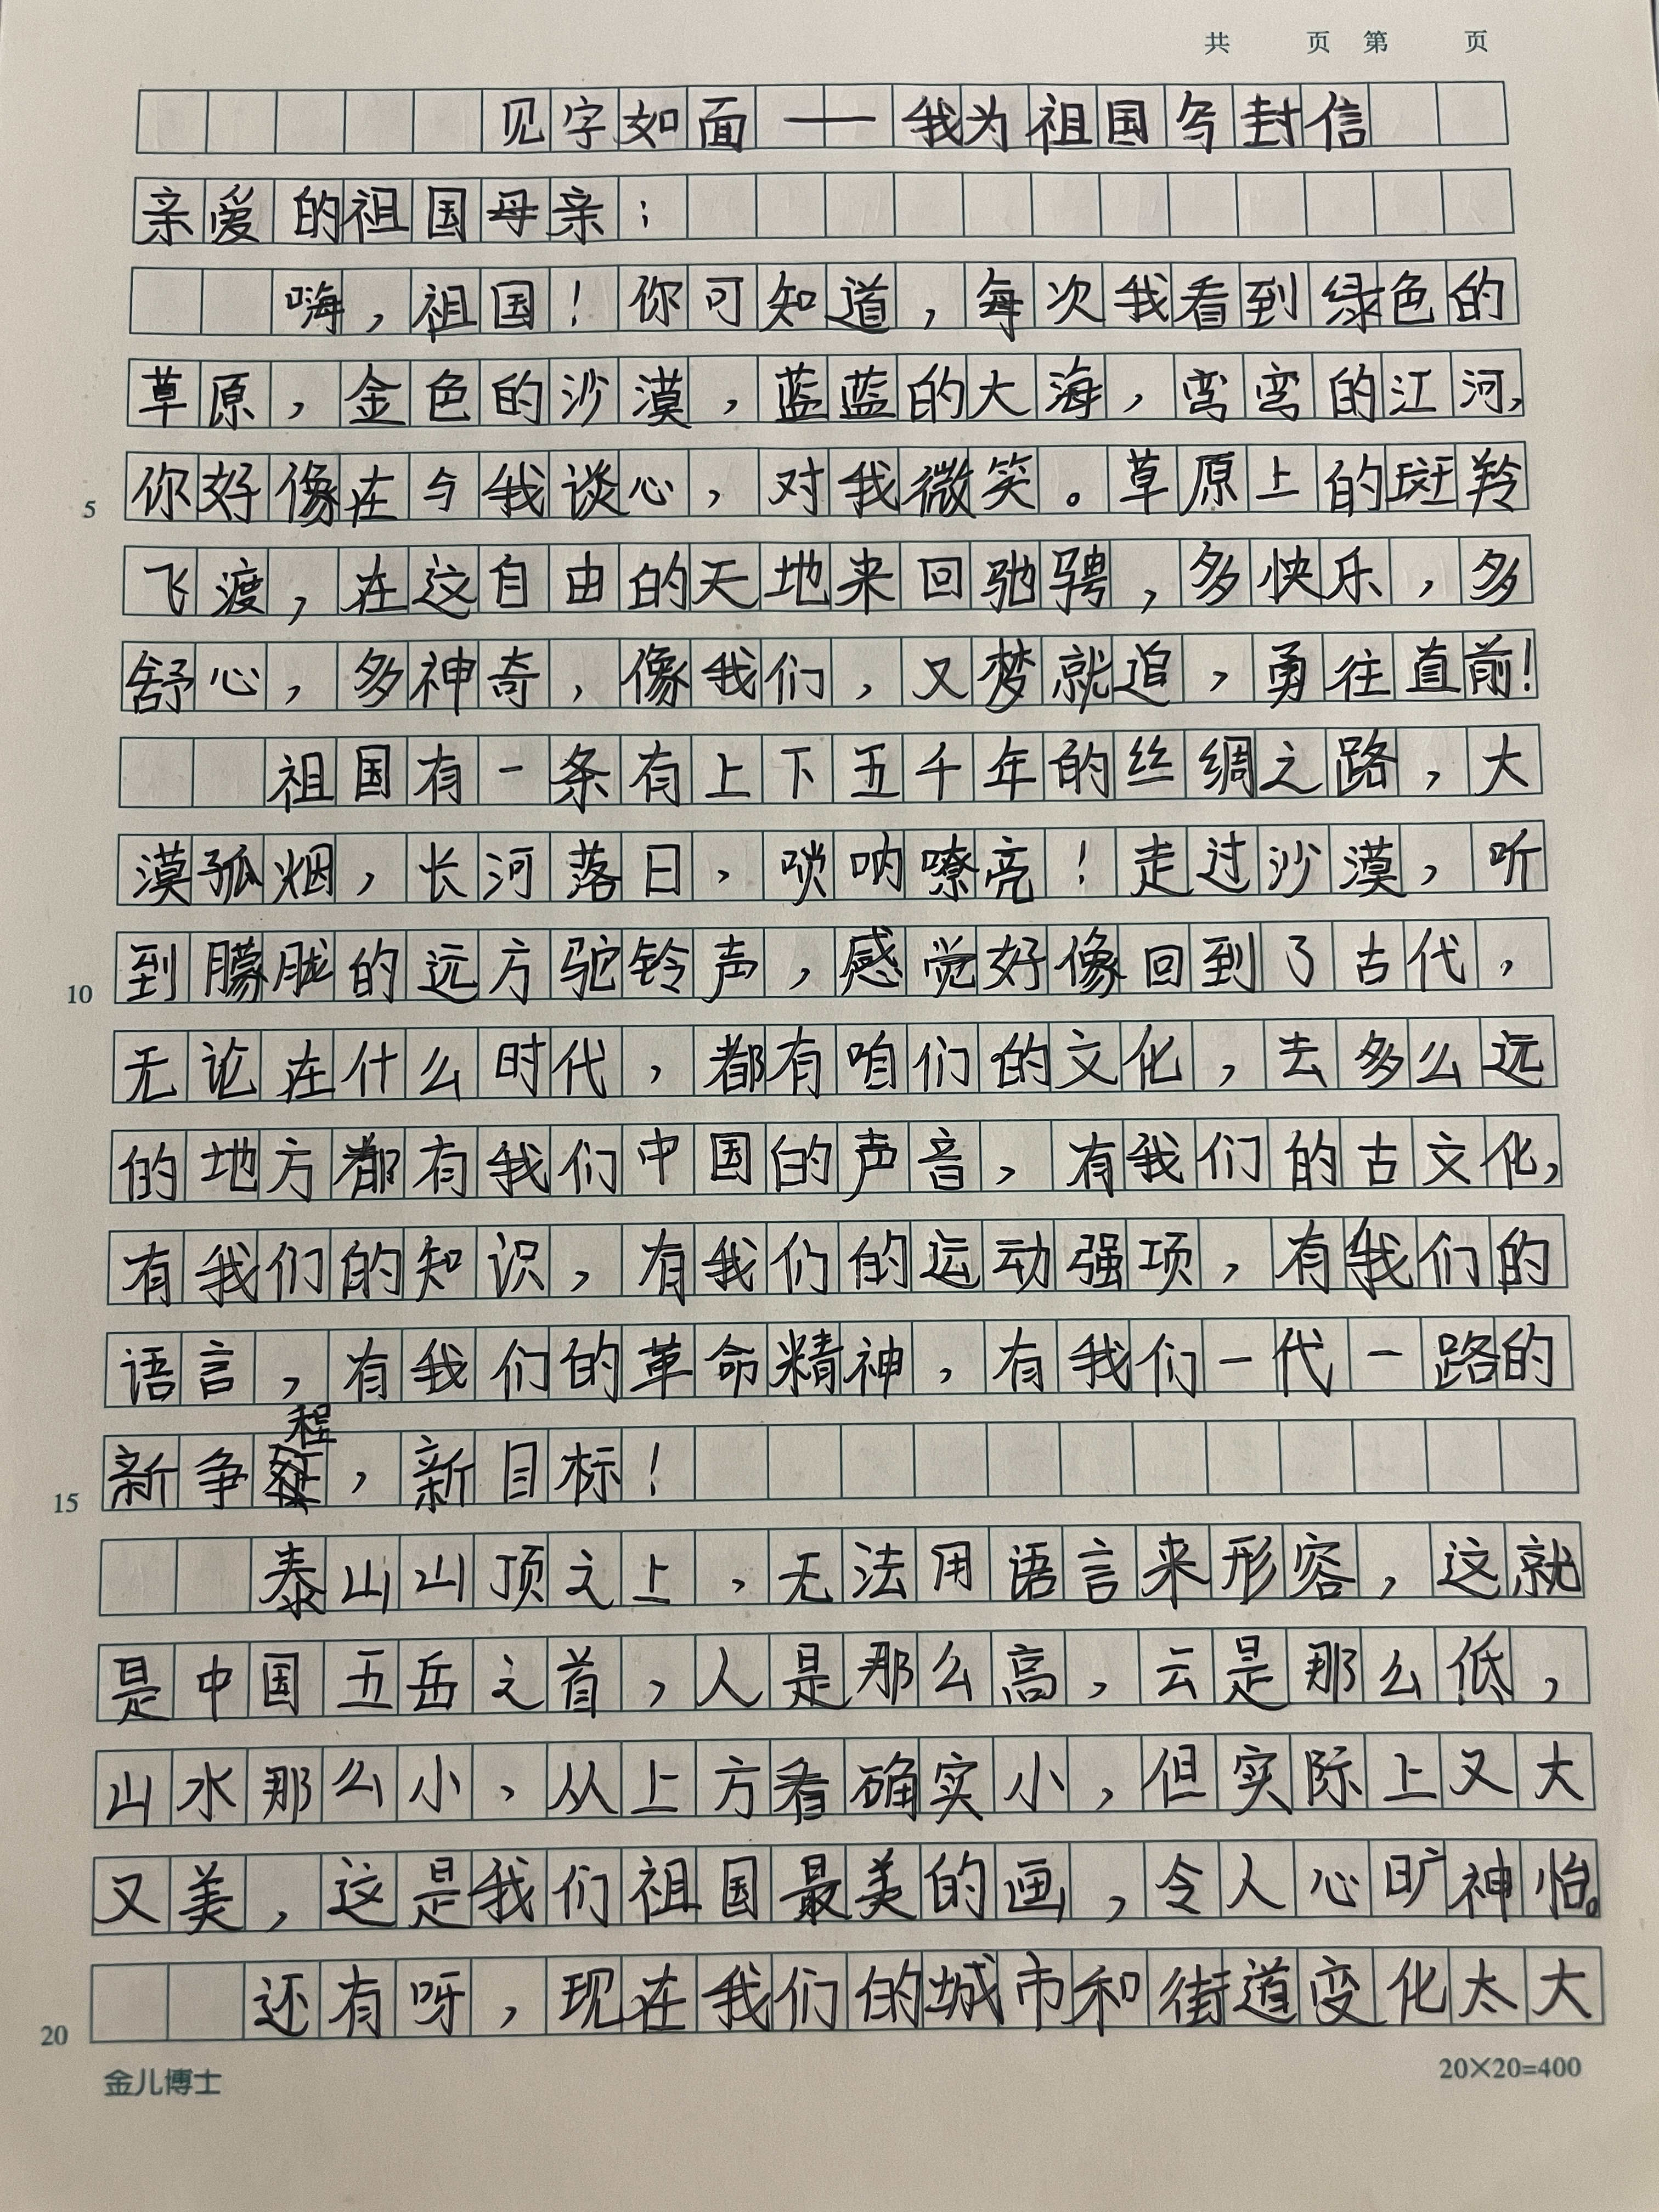 共 页 第 页
见字如面——我为祖国写封信
亲爱的祖国母亲：
嗨，祖国！你可知道，每次我看到绿色的
草原，金色的沙漠，蓝蓝的大海，弯弯的江河，
5 你好像在与我谈心，对我微笑。草原上的斑羚
飞渡，在这自由的天地来回驰骋，多快乐，多
舒心，多神奇，像我们，又梦就追，勇往直前！
祖国有一条有上下五千年的丝绸之路，大
漠孤烟，长河落日，唢呐嘹亮！走过沙漠，听
10 到朦胧的远方驼铃声，感觉好像回到了古代，
无论在什么时代，都有咱们的文化，去多么远
的地方都有我们中国的声音，有我们的古文化，
有我们的知识，有我们的运动强项，有我们的
语言，有我们的革命精神，有我们一代一路的
15 新争程，新目标！
泰山山顶之上，无法用语言来形容，这就
是中国五岳之首，人是那么高，云是那么低，
山水那么小，从上方看确实小，但实际上又大
又美，这是我们祖国最美的画，令人心旷神怡。
20 还有呀，现在我们的城市和街道变化太大
金儿博士 20×20=400